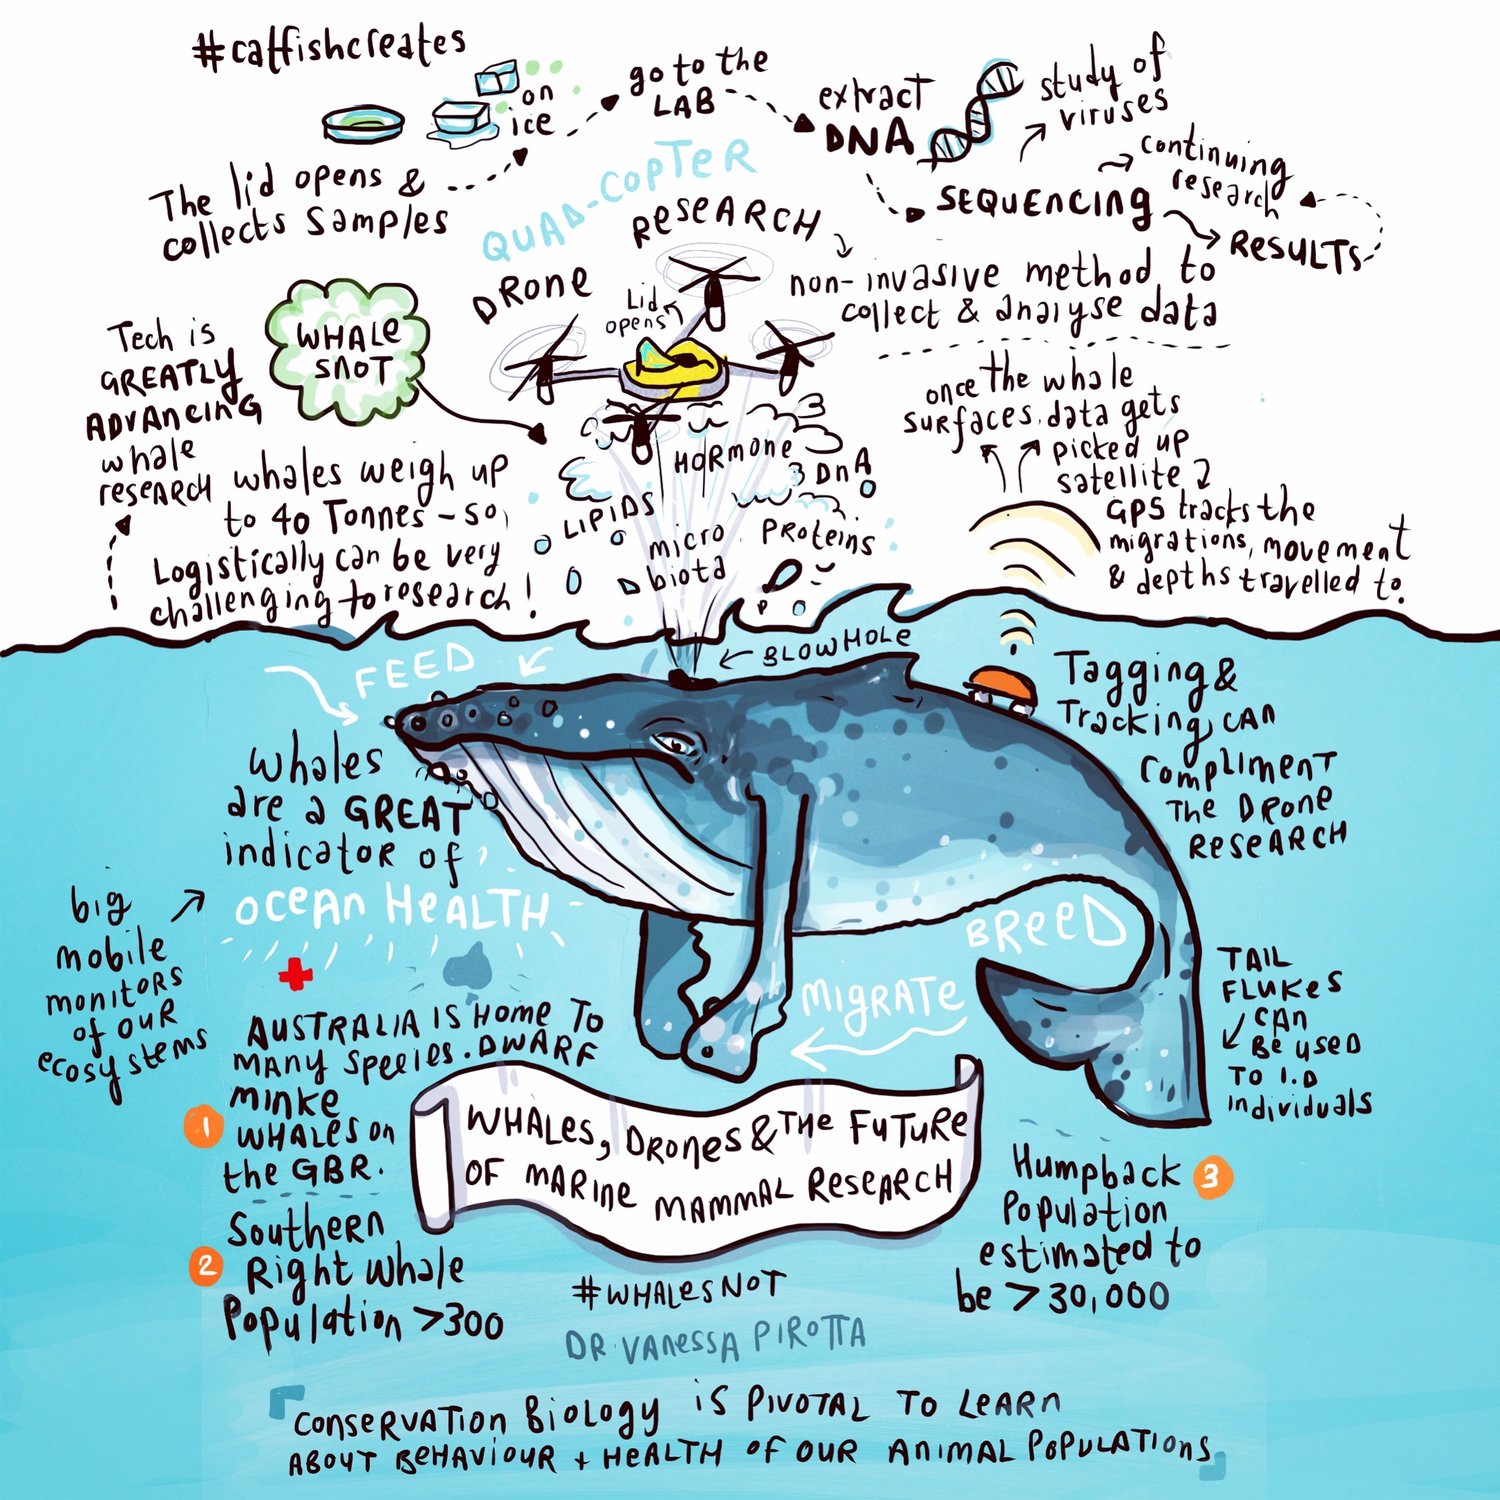 #catfishcreates
The lid opens &
collects samples
on
ice
go to the
LAB
extract
DNA
study of
viruses
SEQUENCING
continuing
research
RESULTS
QUAD-COPTER
DRONE
RESEARCH
non-invasive method to
collect & analyse data
Lid
opens
WHALE
SNOT
Tech is
GREATLY
ADVANCING
whale
RESEARCH
whales weigh up
to 40 Tonnes - so,
Logistically can be very
challenging to research!
HORMONE
DNA
LIPIDS
micro
biota
PROTEINS
once the whale
surfaces, data gets
picked up
satellite
GPS tracks the
migrations, movement
& depths travelled to.
BLOWHOLE
FEED
Tagging &
Tracking CAN
COMPLIMENT
THE DRONE
RESEARCH
whales
are a GREAT
indicator of
OCEAN HEALTH
big
mobile
monitors
of our
ecosystems
BREED
MIGRATE
TAIL
FLUKES
CAN
BE USED
TO I.D
individuals
AUSTRALIA IS HOME TO
MANY SPECIES. DWARF
MINKE
1 WHALES ON
the GBR.
Southern
2 Right whale
Population >300
WHALES, DRONES & THE FUTURE
OF MARINE MAMMAL RESEARCH
Humpback 3
Population
estimated to
be > 30,000
#WHALESNOT
DR VANESSA PIROTTA
CONSERVATION BIOLOGY IS PIVOTAL TO LEARN
ABOUT BEHAVIOUR + HEALTH OF OUR ANIMAL POPULATIONS